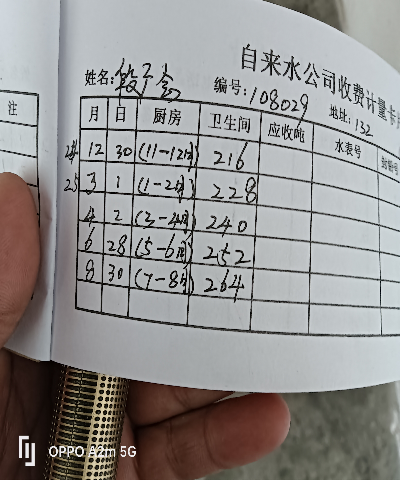 注
自来水公司收费计量卡片
姓名: 编号:108029 地址:132
月 日 厨房 卫生间 应收吨 水表号
24 12 30 (11-12月) 216
25 3 1 (1-2月) 228
4 2 (3-4月) 240
6 28 (5-6月) 252
8 30 (7-8月) 264
OPPO A2m 5G